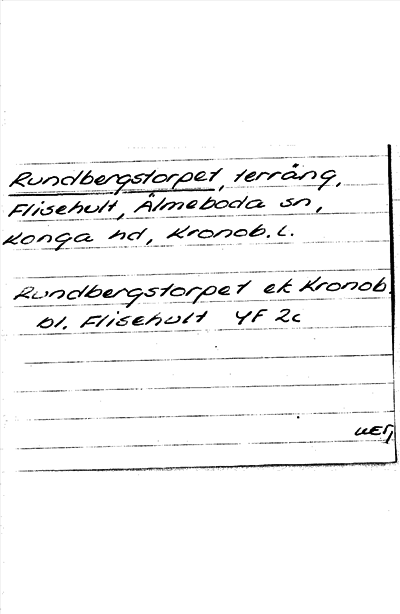 Rundbergstorpet, terräng,
Flisehult, Älmeboda sn,
Konga hd, Kronob. l.
Rundbergstorpet ek Kronob.
bl. Flisehult 4F 2c